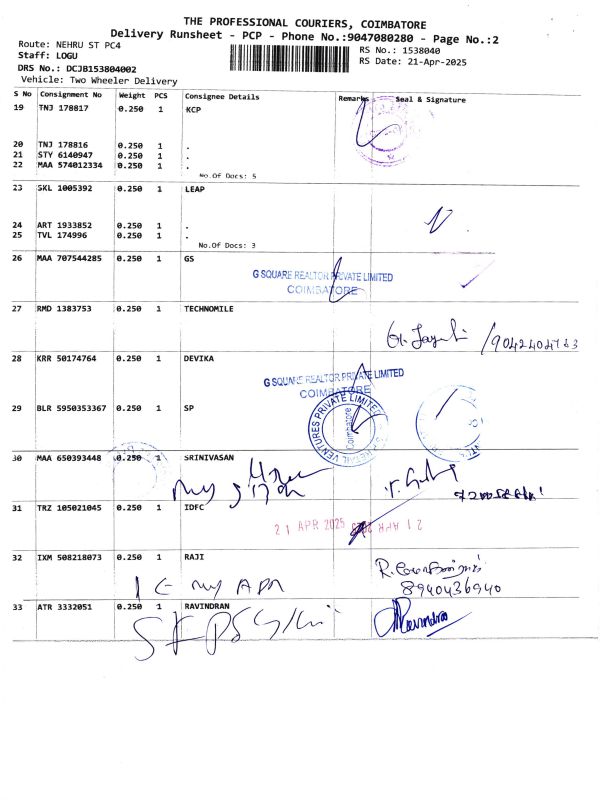 THE PROFESSIONAL COURIERS, COIMBATORE
Delivery Runsheet - PCP - Phone No.:9047080280 - Page No.:2
Route: NEHRU ST PC4
RS No.: 1538040
Staff: LOGU
RS Date: 21-Apr-2025
DRS No.: DCJB153804002
Vehicle: Two Wheeler Delivery
S No Consignment No Weight PCS Consignee Details Remarks Seal & Signature
19 TNJ 178817 0.250 1 KCP
20 TNJ 178816 0.250 1 .
21 STY 6140947 0.250 1 .
22 MAA 574012334 0.250 1 .
No.Of Docs: 5
23 SKL 1005392 0.250 1 LEAP
24 ART 1933852 0.250 1 .
25 TVL 174996 0.250 1 .
No.Of Docs: 3
26 MAA 707544285 0.250 1 GS
G SQUARE REALTOR PRIVATE LIMITED
COIMBATORE
27 RMD 1383753 0.250 1 TECHNOMILE
28 KRR 50174764 0.250 1 DEVIKA
G SQUARE REALTOR PRIVATE LIMITED
COIMBATORE
29 BLR 5950353367 0.250 1 SP
VENTURES PRIVATE LIMITED
Coimbatore
30 MAA 650393448 0.250 1 SRINIVASAN
31 TRZ 105021045 0.250 1 IDFC
21 APR 2025
21 APR 2025
32 IXM 508218073 0.250 1 RAJI
8940436940
33 ATR 3332051 0.250 1 RAVINDRAN